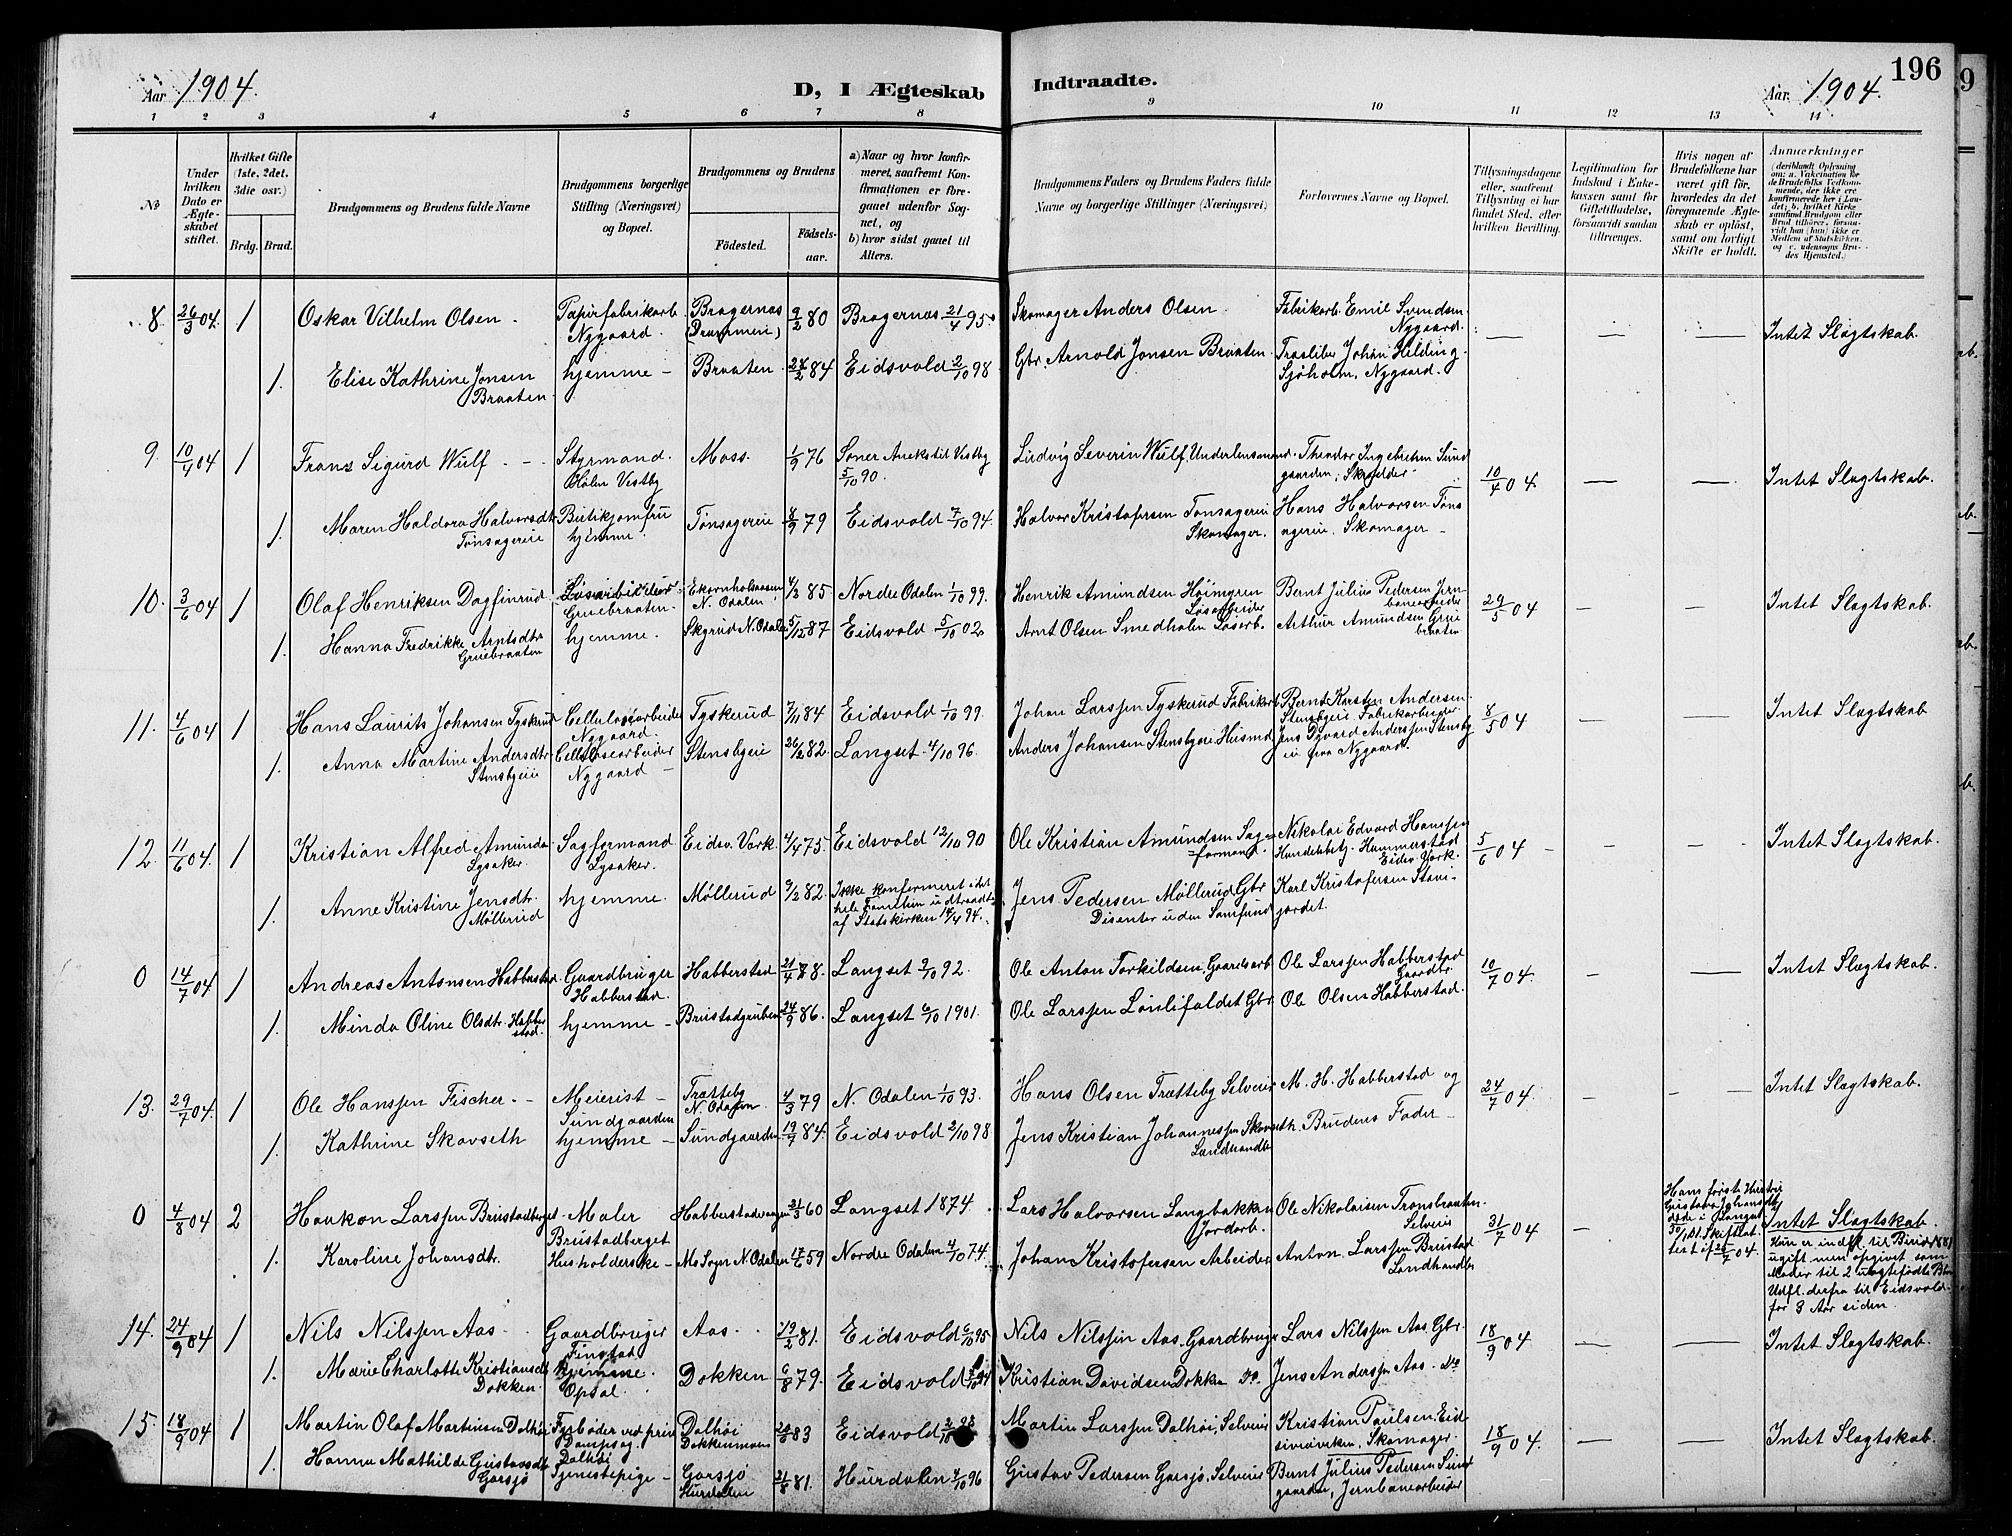 196
Aar 1904.
D, I Ægteskab Indtraadte.
Aar 1904.
1 2 3 4 5 6 7 8 9 10 11 12 13 14
No
Under hvilken Dato er Ægteskabet stiftet.
Hvilket Gifte (1ste, 2det, 3die osv.)
Brdg. Brud.
Brudgommens og Brudens fulde Navne
Brudgommens borgerlige Stilling (Næringsvei) og Bopæl.
Brudgommens og Brudens
Fødested.
Fødselsaar.
a) Naar og hvor konfirmeret, saafremt Konfirmationen er foregaaet udenfor Sognet, og
b) hvor sidst gaaet til Alters.
Brudgommens Faders og Brudens Faders fulde Navne og borgerlige Stillinger (Næringsvei)
Forlovernes Navne og Bopæl.
Tillysningsdagene eller, saafremt Tillysning ei har fundet Sted, efter hvilken Bevilling.
Legitimation for Indskud i Enkekassen samt for Giftetilladelse, forsaavidt saadan tiltrænges.
Hvis nogen af Brudefolkene har været gift før, hvorledes da det foregaaende Ægteskab er opløst, samt om lovligt Skifte er holdt.
Anmærkninger
(deriblandt Oplysning om: a. Vakcination for de Brudefolks Vedkommende, der ikke ere konfirmerede her i Landet; b. hvilket Kirkesamfund Brudgom eller Brud tilhører, forsaavidt han (hun) ikke er Medlem af Statskirken, og c. udensogns Brudes Hjemsted.)
8. 26/3 04. 1 Oskar Vilhelm Olsen. Papirfabrikarb. Nygaard. Bragernæs (Drammen) 9/2 80 Bragernæs 21/4 95. Skomager Anders Olsen. Fabrikarb. Emil Svendsen Nygaard. — — — Intet Slægtskab.
1. Elise Kathrine Jonsen Braaten. hjemme – Braaten. 24/2 84 Eidsvold 2/10 98 Gbr. Arnold Jonsen Braaten. Træsliber Johan Hilding Sjöholm, Nygaard.
9. 10/4 04 1 Frans Sigurd Wulf. Styrmand. Hølen Vestby Moss. 1/9 76 Soner Aneks til Vestby 5/10 90. Ludvig Severin Wulf, Theodor Ingebretsen Sundgaarden, Skrædder. 10/4 04. — — Intet Slægtskab.
1. Maren Haldora Halvorsdt. Tønsagereie Butikjomfru hjemme. Tønsagereie 8/9 79 Eidsvold 7/10 94. Halvor Kristofersen Tønsagereie Skomager. Hans Halvorsen Tønsagereie, Skomager –
10. 3/6 04 1 Olaf Henriksen Dagfinrud Løsarbeider Gruebraaten. N. Odalen 4/3 85 Nordre Odalen 1/10 99. Henrik Amundsen Løsarbeider Bernt Julius Pedersen Jernbanearbeider 29/5 04 – – Intet Slægtskab.
1. Hanna Fredrikke Arntsdtr. Gruebraaten hjemme. N. Odalen 5/12 87 Eidsvold 5/10 02 Arnt Olsen Smedholen Løsarb. Arthur Amundsen Gruebraaten
11. 4/6 04 1 Hans Laurits Johansen Tyskerud Cellulosearbeider Nygaard. Tyskerud 7/11 84 Eidsvold 1/10 99. Johan Larssen Tyskerud Fabrikarb. Bernt Karsten Andersen Stensbyeie Fabrikarbeider 8/5 04 – – Intet Slægtskab
1. Anna Martine Andersdtr. Stensbyeie Cellulosearbeider Nygaard – Stensbyeie 26/2 82. Langset 4/10 96. Anders Johansen Stensbyeie Husmd. Anderssen Stensbyeie fra Nygaard.
12. 11/6 04. 1 Kristian Alfred Amunds. Lysaker Sagformand Lysaker. Eidsv. Værk. 4/4 75. Eidsvold 12/10 90 Ole Kristian Amundsen Sagformand. Nikolai Edvard Hanssen Handelsbetj. Hammerstad Eidsv. Værk. 5/6 04 – – – Intet Slægtskab.
1. Anne Kristine Jensdtr. Møllerud hjemme. Møllerud 9/2 82. Ikke konfirmeret idet hele Familien udtraadt af Statskirken 14/4 94. Jens Pedersen Møllerud Gbr. Disenter uden Samfund Karl Kristofersen Stavigjordet.
0 14/7 04 1 Andreas Antonsen Habberstad Gaardbruger Habberstad. Habberstad 21/4 78. Langset 9/10 92. Ole Anton Torkildsen, Gaardsarb. Ole Larssen Habberstad Gaardbr. 10/7 04. – — Intet Slægtskab.
1. Minda Oline Olsdtr. Habberstad. hjemme – Brustadgruben 24/9 86. Langset 6/10 1901. Ole Larssen Lønlifaldet Gbr. Ole Olsen Habberstad.
13. 29/7 04. 1 Ole Hanssen Fischer. Meierist – Sundgaarden Trætteby N. Odalen 4/3 79 N. Odalen 1/10 93. Hans Olsen Trætteby Selveier M. H. Habberstad og 24/7 04. – – – Intet Slægtskab.
1. Kathrine Skovseth hjemme – Sundgaarden 19/7 84. Eidsvold 2/10 98 Jens Kristian Johannessen Skovseth. Landhandler Brudens Fader –
0 4/8 04 2 Haakon Larssen Brustadberget Maler Brustadberget Habberstadvangen 21/3 60 Langset 1874. Lars Halvorsen Langbakken Jordarb. Ole Nikolaisen Trønbraaten Selveier 31/7 04 – Hans første Hustru Gustava Johansdtr. døde i Langset 30/1 01. Skifteattest af 25/7 04. Intet Slægtskab. Hun er indfl. til Birid 1881 ugift men opgivet som Moder til 2 uægtefødte Børn. Udfl. derfra til Eidsvold for 3 Aar siden.
1. Karoline Johansdtr. Husholderske – Mo Sogn N. Odalen 17/6 59 Nordre Odalen 4/10 74. Johan Kristofersen Arbeider Anton Larssen Brustad Landhandler
14. 24/9 04 1 Nils Nilssen Aas. Gaardbruger Finstad Aas. 19/2 81. Eidsvold 6/10 95 Nils Nilssen Aas, Gaardbruger Lars Nilssen Aas, Gbr. 18/9 04 — — Intet Slægtskab.
1. Marie Charlotte Kristiansdt. Dokken. hjemme. Opsal. Dokken 6/8 79. Eidsvold Kristian Davidsen Dokken Do. Jens Anderssen Aas. Do
15. 18/9 04 1 Martin Olaf Martinsen Dalhøi Fyrbøder ved Dampsag. Dalhøi Dalhøi 20/6 83 Eidsvold Martin Larssen Dalhøi, Selveier Kristian Paulsen, Skomager. 18/9 04. — — Intet Slægtskab.
1. Hanna Mathilde Gustavsdt. Garsjø Tjenestepige – Garsjø Hurdalen 21/8 81. Hurdalen 4/10 96 Gustav Pedersen Garsjø, Selveier Bernt Julius Pedersen Sundgaarden, Jernbanearbeider